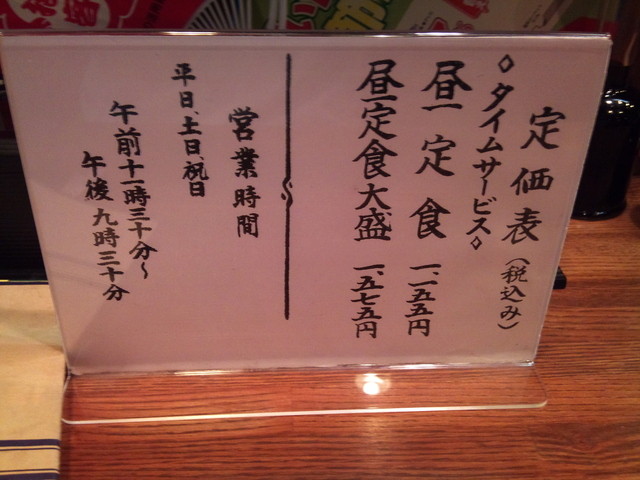 定価表(税込み)
◇タイムサービス◇
昼定食 一、一五五円
昼定食大盛 一、五七五円
営業時間
平日、土日、祝日
午前十一時三十分〜
午後九時三十分